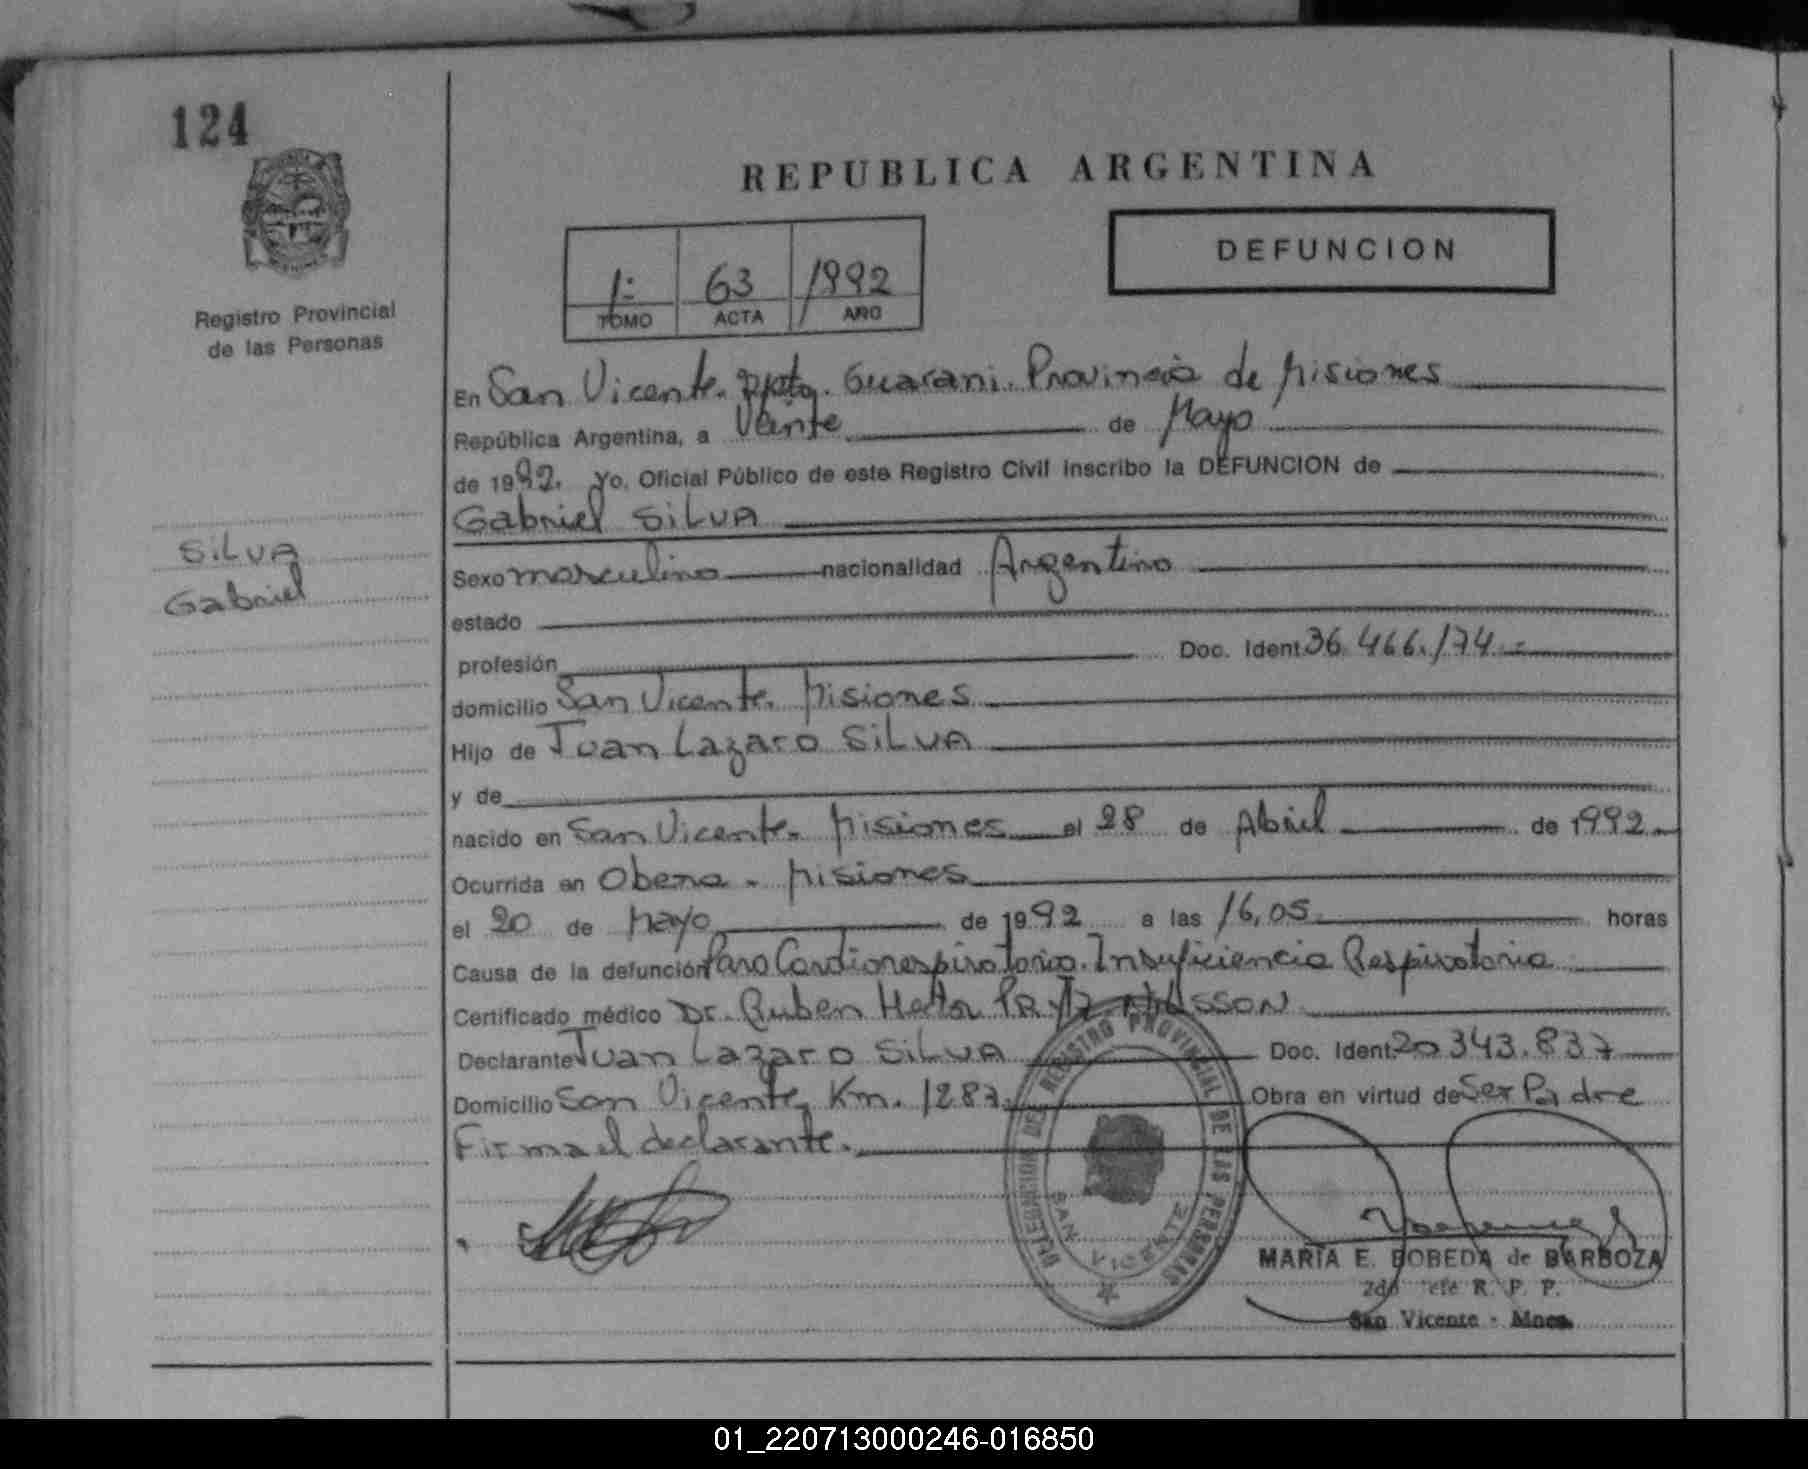 124
REPUBLICA ARGENTINA
DEFUNCION
1: 63 1992
TOMO ACTA AÑO
Registro Provincial
de las Personas
En San Vicente. Dpto. Guarani. Provincia de Misiones
República Argentina, a Veinte de Mayo
de 1992. Yo, Oficial Público de este Registro Civil inscribo la DEFUNCION de
Gabriel SILVA
SILVA
Gabriel
Sexo masculino nacionalidad Argentino
estado
profesión Doc. Ident. 36.466.174.-
domicilio San Vicente. Misiones
Hijo de Juan Lazaro SILVA
y de
nacido en San Vicente. Misiones el 28 de Abril de 1992
Ocurrida en Obera. Misiones
el 20 de Mayo de 1992 a las 16,05 horas
Causa de la defunción Paro Cardiorespiratorio. Insuficiencia Respiratoria
Certificado médico Dr. Ruben Hector
Declarante Juan Lazaro SILVA Doc. Ident. 20 343.837
Domicilio San Vicente, Km. 1287. Obra en virtud de Ser Padre
Firma el declarante.
DELEGACION DEL REGISTRO PROVINCIAL DE LAS PERSONAS
SAN VICENTE
MARIA E. BOBEDA de BARBOZA
2do Jefe R. P. P.
San Vicente - Mnes.
01_220713000246-016850